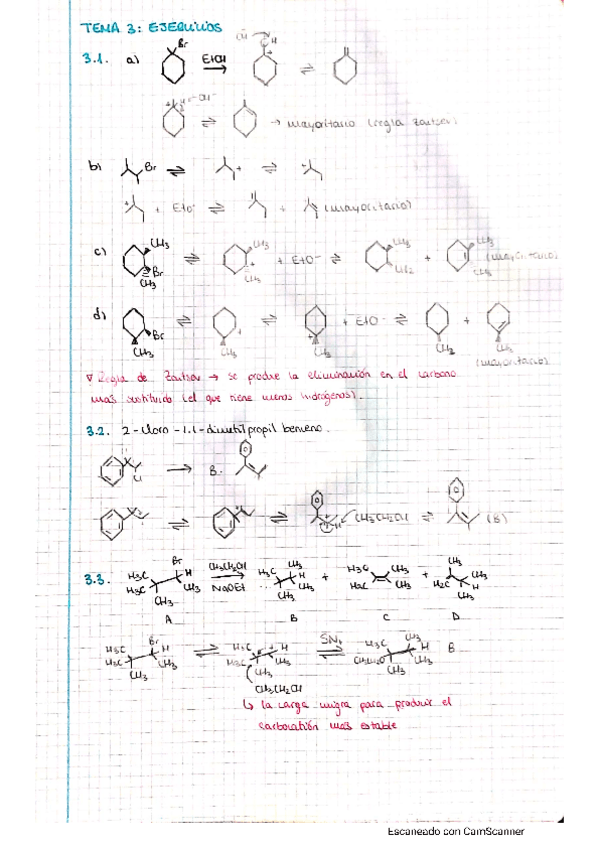 TEMA 3: EJERCICIOS
3.1. a) Br EtOH H
H → mayoritario (regla Zaitsev)
b) Br + +
+ + EtO⁻ + (mayoritario)
c) CH₃ Br CH₃ CH₃ + CH₃ + EtO⁻ CH₃ CH₂ + CH₃ CH₃
d) Br CH₃ + CH₃ + CH₃ + EtO⁻ CH₂ + CH₃ (mayoritario)
Regla de Zaitsev → se produce la eliminación en el carbono
más sustituido (el que tiene menos hidrógenos).
3.2. 2-cloro-1,1-dimetilpropil benceno.
Cl B.
CH₃CH₂OH (B)
3.3. H₃C H₃C Br H CH₃ CH₃ CH₃CH₂OH NaOEt H₃C CH₃ H CH₃ CH₃ + H₃C H₃C CH₃ CH₃ + CH₃ H₂C CH₃ H CH₃
A B C D
H₃C H₃C Br H CH₃ CH₃ H₃C H₃C + H CH₃ CH₃ SN₁ H₃C CH₃ H CH₃ CH₃ B
CH₃CH₂OH
↳ la carga migra para producir el
carbocatión más estable
Escaneado con CamScanner